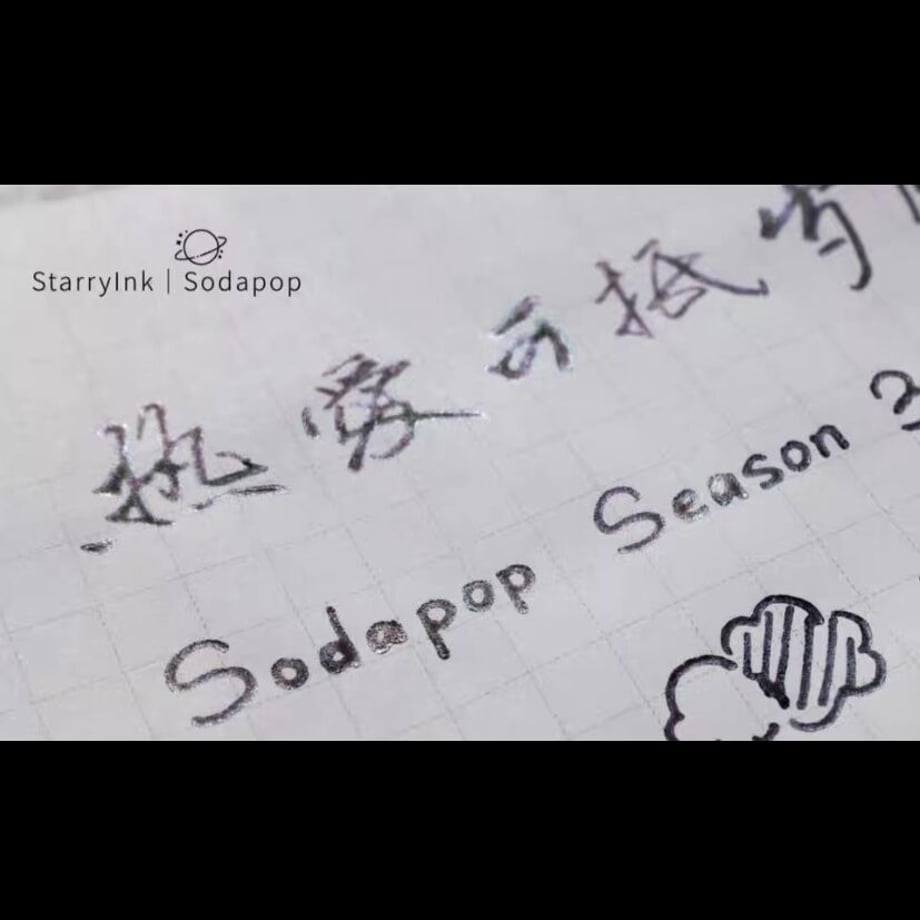 StarryInk | Sodapop
热爱可抵岁
Sodapop Season 3